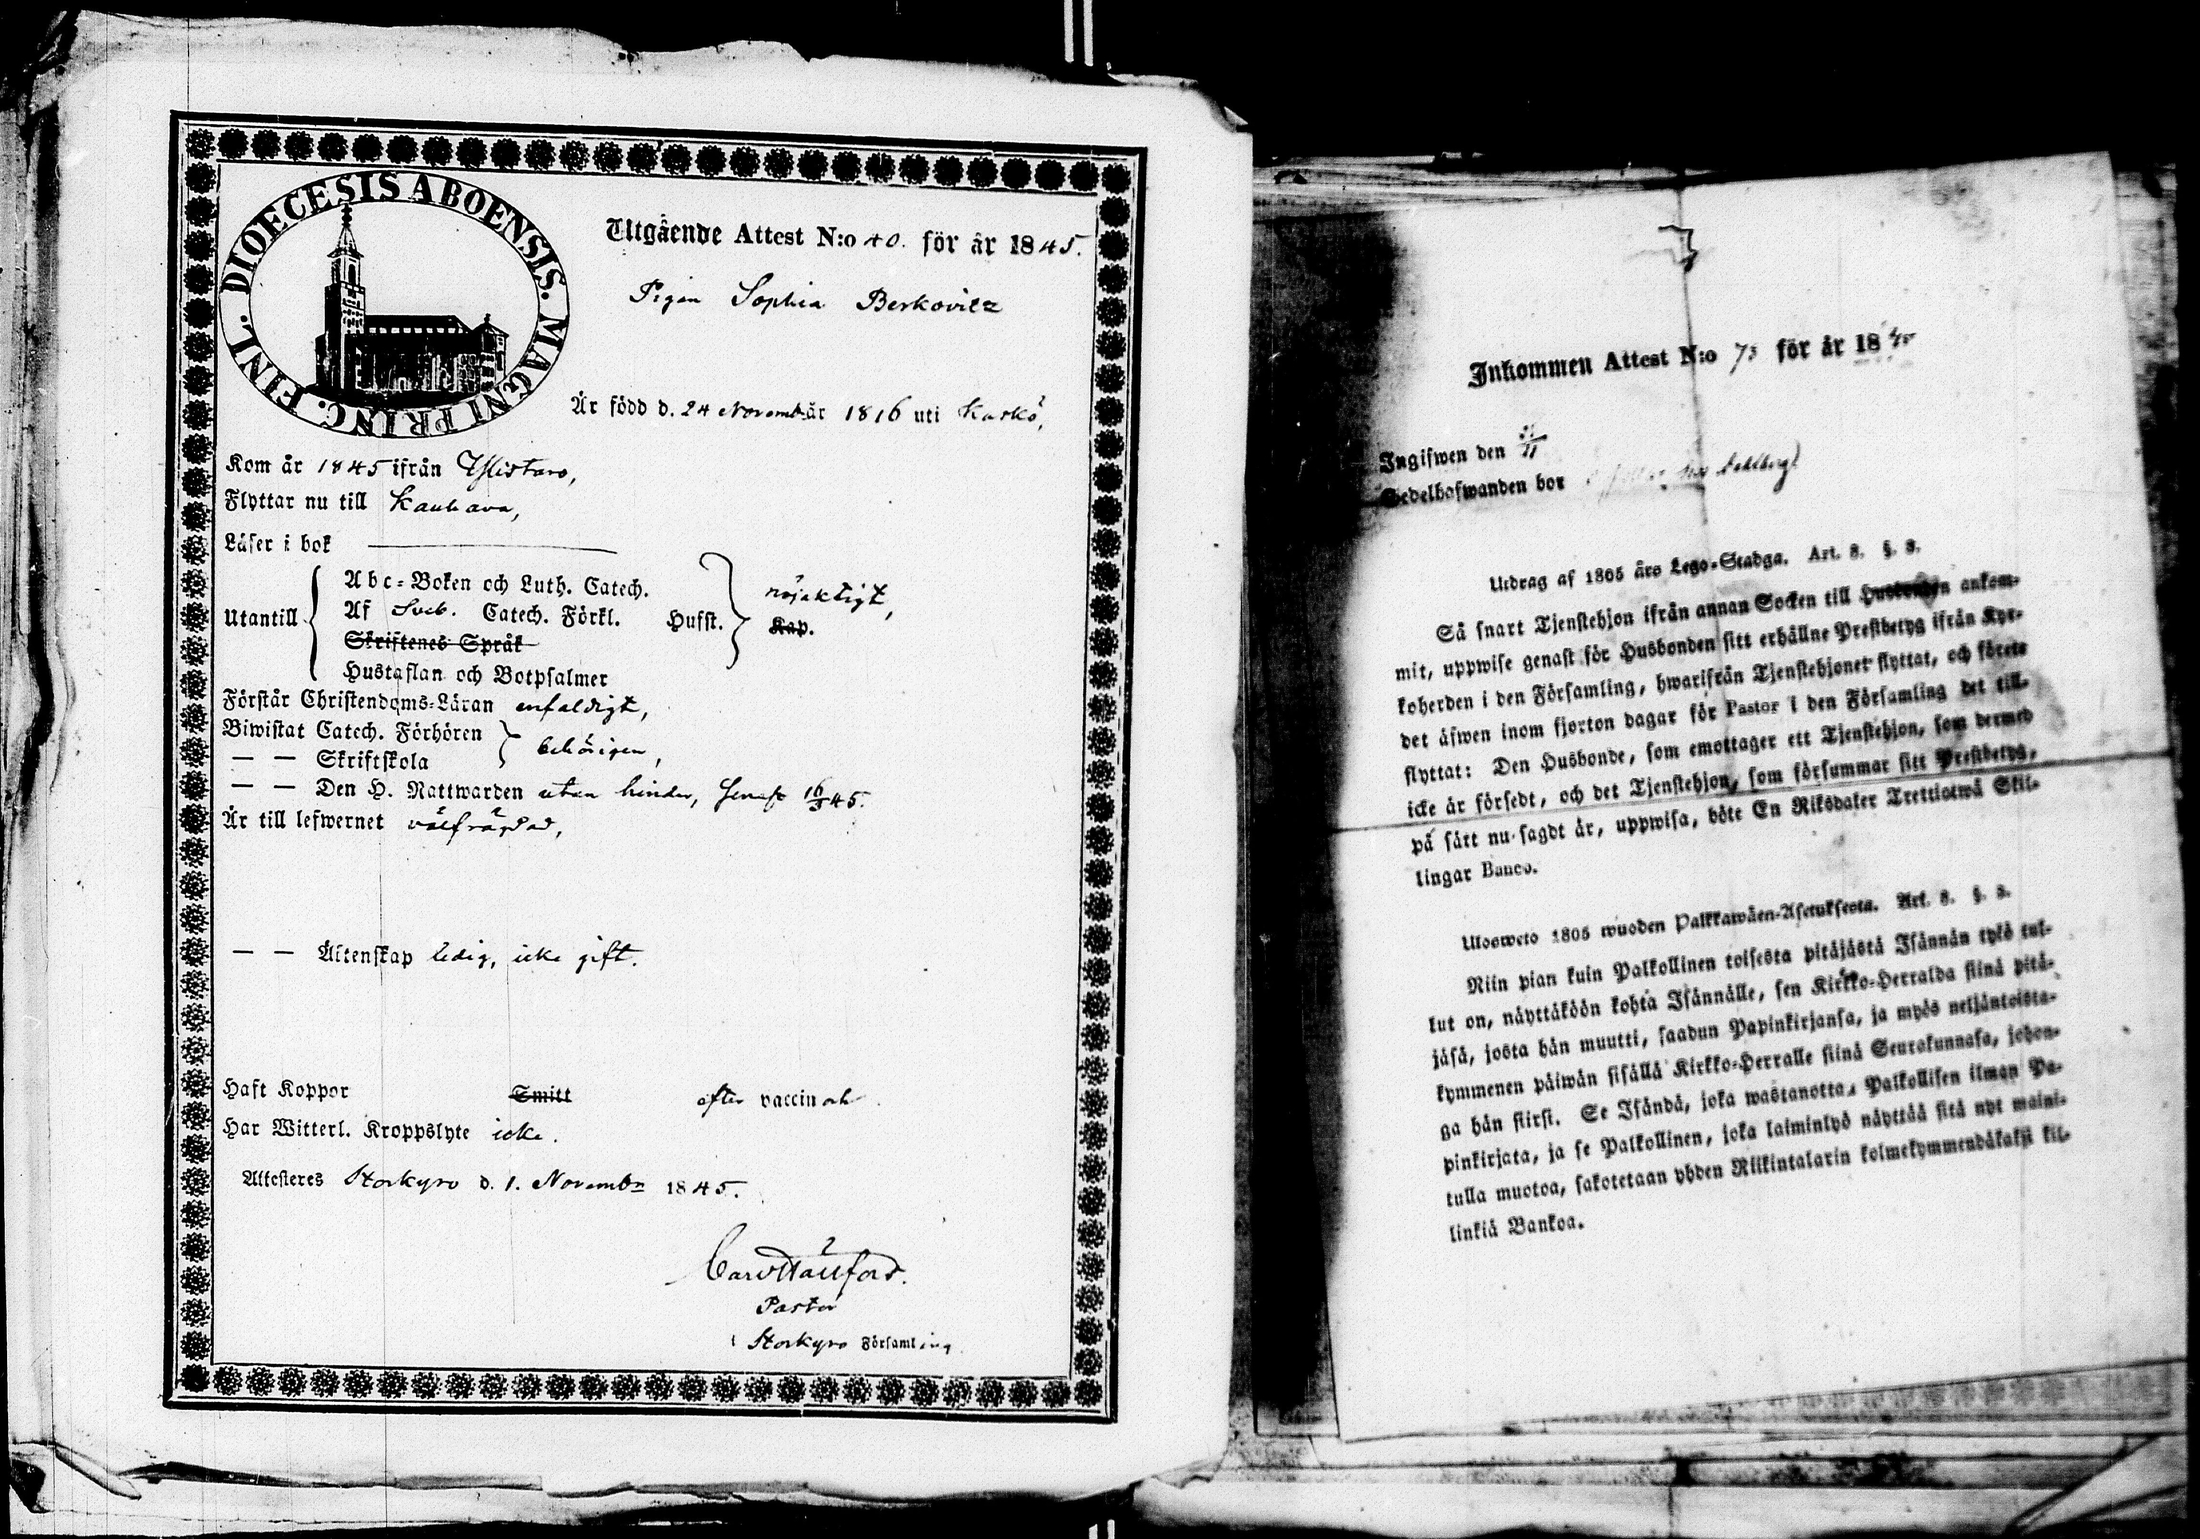 DIOECESIS ABOENSIS. MAGNI PRINC. FINL.
Utgående Attest N:o 40. för år 1845.
Pigan Sophia Berkovitz
Är född d. 24 Novemb. år 1816 uti Kaskö,
Kom år 1845 ifrån Ylistaro,
Flyttar nu till Kauhava,
Läser i bok
Utantill
Abc-Boken och Luth. Catech.
Af Sveb. Catech. Förkl.
Skriftenes Språk
Hustaflan och Botpsalmer
Hufst.
nöjaktigt,
Kap.
Förstår Christendoms-Läran enfaldigt,
Biwistat Catech. Förhören
— — Skriftskola
behörigen,
— — Den H. Nattwarden utan hinder, senast 16/3 45.
Är till lefwernet välfrägdad,
— — Äktenskap ledig, icke gift.
Haft Koppor Smitt efter vaccination
Har Witterl. Kroppslyte icke.
Attesteres Storkyro d. 1. Novembr 1845.
Pastor
i Storkyro Församling
Inkommen Attest N:o 73 för år 1845
Ingifwen den 21/11
Sedelhafwanden bor Dahlberg
Utdrag af 1805 års Lego-Stadga. Art. 8. §. 8.
Så snart Tjenstehjon ifrån annan Socken till Husbonden ankom-
mit, uppwise genast för Husbonden sitt erhållne Prestbetyg ifrån Kyr-
koherden i den Församling, hwarifrån Tjenstehjonet flyttat, och förete
det äfwen inom fjorton dagar för Pastor i den Församling det till-
flyttat: Den Husbonde, som emottager ett Tjenstehjon, som dermed
icke är försedt, och det Tjenstehjon, som försummar sitt Prestbetyg,
på sätt nu sagdt är, uppwisa, böte En Riksdaler Trettiotwå Skil-
lingar Banco.
Ulosweto 1805 wuoden Palkkawäen-Asetuksesta. Art. 8. §. 8.
Niin pian kuin Palkollinen toisesta pitäjästä Isännän tykö tul-
lut on, näyttäköön kohta Isännälle, sen Kirkko-Herralda siinä pitä-
jäsä, josta hän muutti, saadun Papinkirjansa, ja myös neljäntoista-
kymmenen päiwän sisällä Kirkko-Herralle siinä Seurakunnasa, johon-
ga hän siirsi. Se Isändä, joka wastanotta Palkollisen ilman Pa-
pinkirjata, ja se Palkollinen, joka laiminlyö näyttää sitä nyt maini-
tulla muotoa, sakotetaan yhden Riikintalarin kolmekymmendäkaksi kil-
linkiä Bankoa.